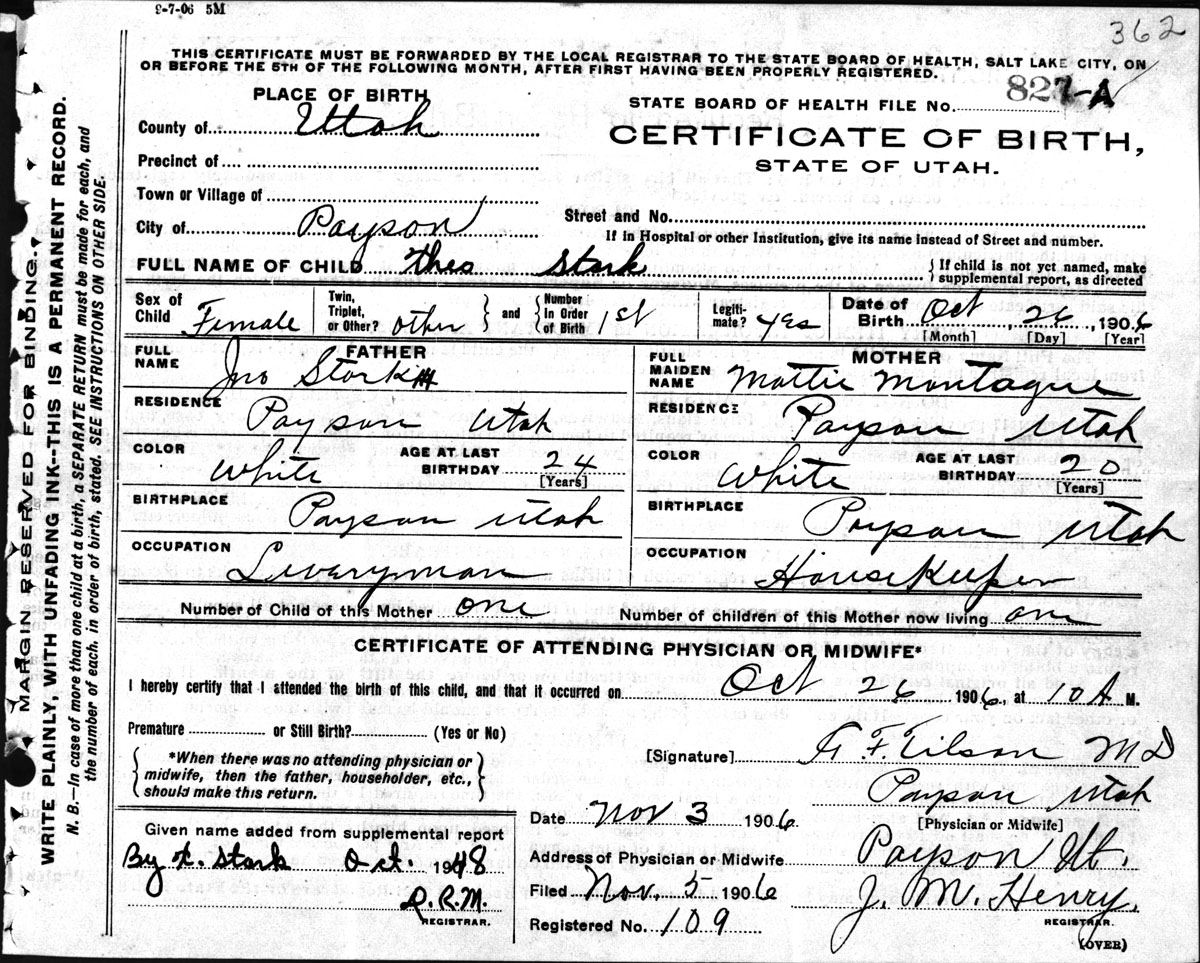 9-7-06 5M
362
THIS CERTIFICATE MUST BE FORWARDED BY THE LOCAL REGISTRAR TO THE STATE BOARD OF HEALTH, SALT LAKE CITY, ON
OR BEFORE THE 5TH OF THE FOLLOWING MONTH, AFTER FIRST HAVING BEEN PROPERLY REGISTERED.
MARGIN RESERVED FOR BINDING.
WRITE PLAINLY, WITH UNFADING INK--THIS IS A PERMANENT RECORD.
N. B.—In case of more than one child at a birth, a SEPARATE RETURN must be made for each, and
the number of each, in order of birth, stated. SEE INSTRUCTIONS ON OTHER SIDE.
PLACE OF BIRTH
STATE BOARD OF HEALTH FILE NO. 827-A
County of Utah
CERTIFICATE OF BIRTH,
STATE OF UTAH.
Precinct of
Town or Village of
City of Payson
Street and No.
If in Hospital or other Institution, give its name instead of Street and number.
FULL NAME OF CHILD Theo Stark
If child is not yet named, make
supplemental report, as directed
Sex of Child Female Twin, Triplet, or Other? other and Number in Order of Birth 1st Legitimate? yes Date of Birth Oct, 26, 1906
[Month] [Day] [Year]
FATHER MOTHER
FULL NAME Jno Stark FULL MAIDEN NAME Mattie Montague
RESIDENCE Payson Utah RESIDENCE Payson Utah
COLOR White AGE AT LAST BIRTHDAY 24 [Years] COLOR White AGE AT LAST BIRTHDAY 20 [Years]
BIRTHPLACE Payson Utah BIRTHPLACE Payson Utah
OCCUPATION Liveryman OCCUPATION HouseKeeper
Number of Child of this Mother one Number of children of this Mother now living one
CERTIFICATE OF ATTENDING PHYSICIAN OR MIDWIFE*
I hereby certify that I attended the birth of this child, and that it occurred on Oct 26 1906, at 10 A M.
Premature or Still Birth? (Yes or No)
*When there was no attending physician or
midwife, then the father, householder, etc.,
should make this return.
[Signature] Tilson MD
Payson Utah
[Physician or Midwife]
Date Nov 3 1906
Given name added from supplemental report
By Stark Oct. 1948
D.R.M.
REGISTRAR.
Address of Physician or Midwife Payson Ut.
Filed Nov. 5 1906 J. M. Henry,
REGISTRAR.
Registered No. 109
(OVER)